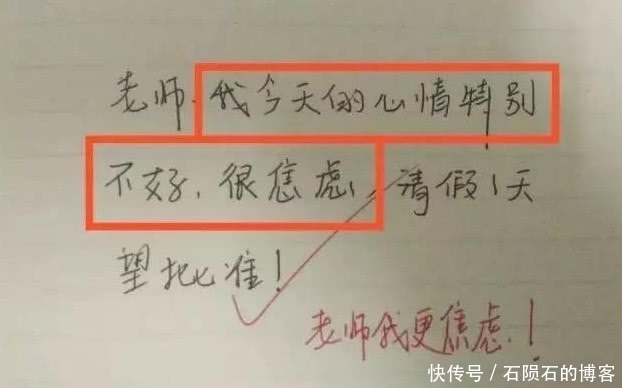 老师,我今天的心情特别
不好,很焦虑,请假1天
望批准!
老师我更焦虑!
快传号/石陨石的博客